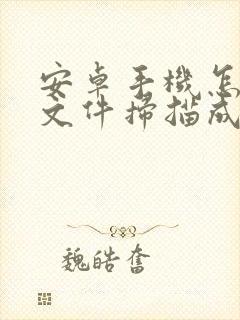 安卓手機怎
文件掃描成
魏皓奮